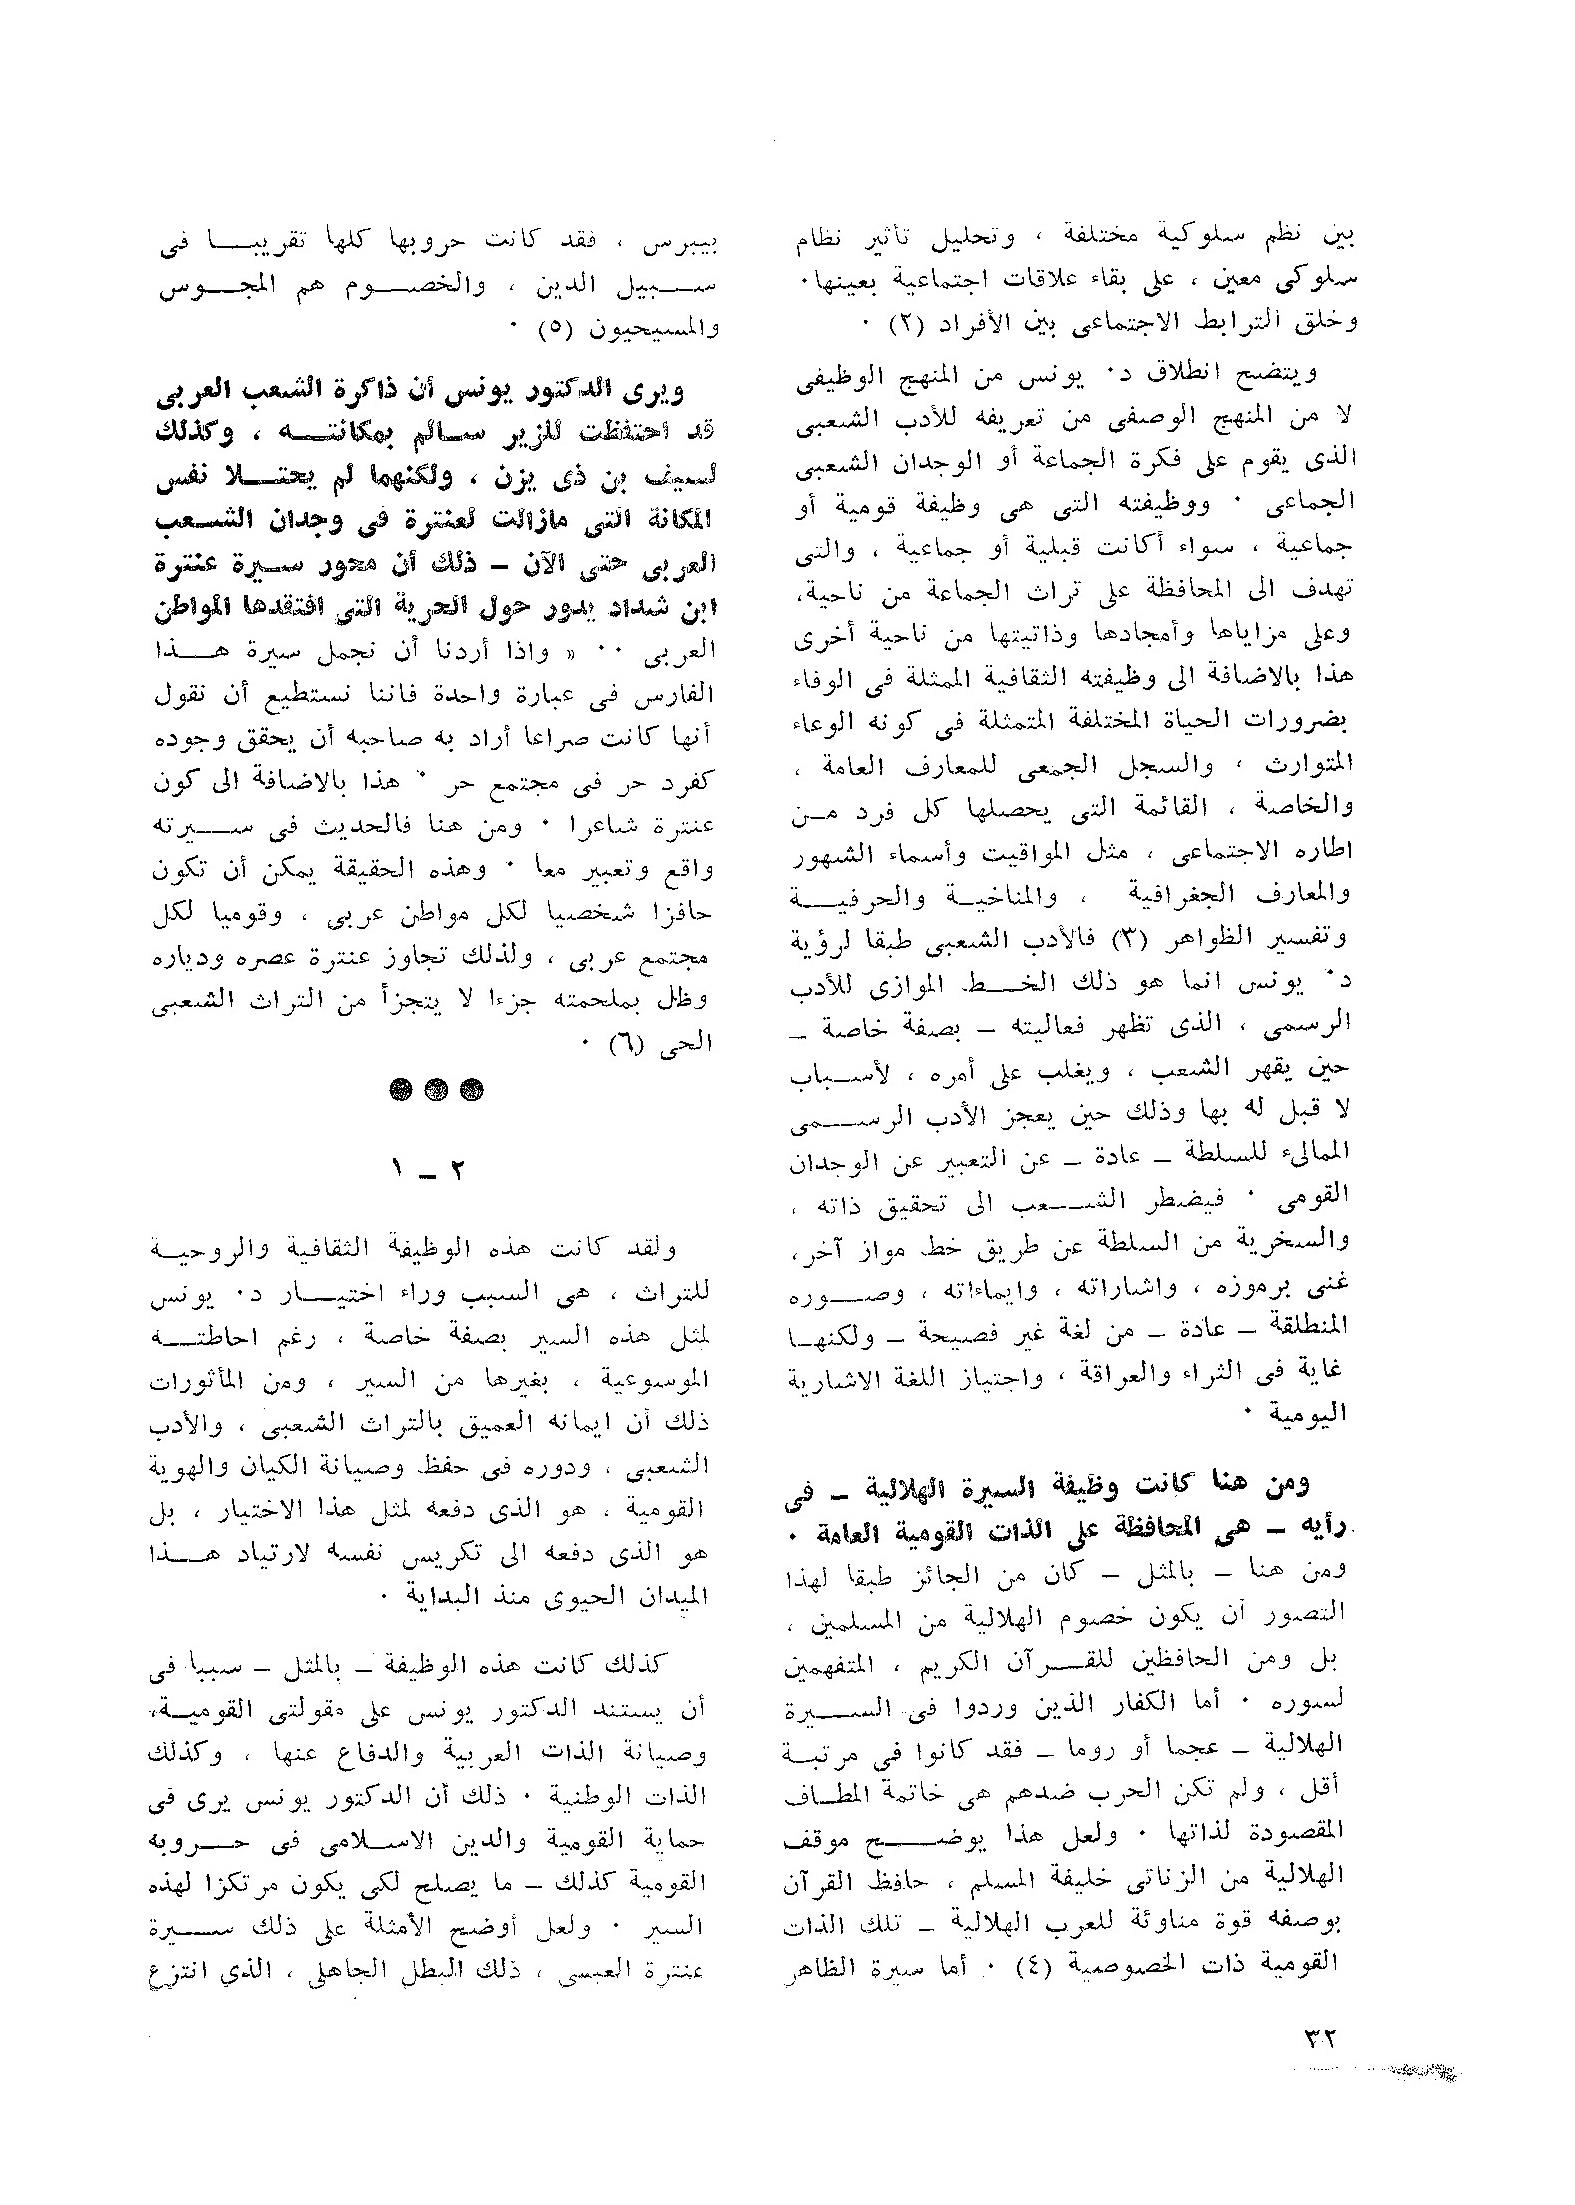 بين نظم سلوكية مختلفة ، وتحليل تأثير نظام
سلوكى معين ، على بقاء علاقات اجتماعية بعينها·
وخلق الترابط الاجتماعى بين الأفراد (٢) ·
ويتضح انطلاق د· يونس من المنهج الوظيفى
لا من المنهج الوصفى من تعريفه للأدب الشعبى
الذى يقوم على فكرة الجماعة أو الوجدان الشعبى
الجماعى · ووظيفته التى هى وظيفة قومية أو
جماعية ، سواء أكانت قبلية أو جماعية ، والتى
تهدف الى المحافظة على تراث الجماعة من ناحية،
وعلى مزاياها وأمجادها وذاتيتها من ناحية أخرى
هذا بالاضافة الى وظيفته الثقافية الممثلة فى الوفاء
بضرورات الحياة المختلفة المتمثلة فى كونه الوعاء
المتوارث ، والسجل الجمعى للمعارف العامة ،
والخاصة ، القائمة التى يحصلها كل فرد من
اطاره الاجتماعى ، مثل المواقيت وأسماء الشهور
والمعارف الجغرافية ، والمناخية والحرفية
وتفسير الظواهر (٣) فالأدب الشعبى طبقا لرؤية
د· يونس انما هو ذلك الخط الموازى للأدب
الرسمى ، الذى تظهر فعاليته – بصفة خاصة –
حين يقهر الشعب ، ويغلب على أمره ، لأسباب
لا قبل له بها وذلك حين يعجز الأدب الرسمى
الممالىء للسلطة – عادة – عن التعبير عن الوجدان
القومى · فيضطر الشعب الى تحقيق ذاته ،
والسخرية من السلطة عن طريق خط مواز آخر،
غنى برموزه ، واشاراته ، وايماءاته ، وصوره
المنطلقة – عادة – من لغة غير فصيحة – ولكنها
غاية فى الثراء والعراقة ، واجتياز اللغة الاشارية
اليومية ·
ومن هنا كانت وظيفة السيرة الهلالية – فى
رأيه – هى المحافظة على الذات القومية العامة ·
ومن هنا – بالمثل – كان من الجائز طبقا لهذا
التصور أن يكون خصوم الهلالية من المسلمين ،
بل ومن الحافظين للقرآن الكريم ، المتفهمين
لسوره · أما الكفار الذين وردوا فى السيرة
الهلالية – عجما أو روما – فقد كانوا فى مرتبة
أقل ، ولم تكن الحرب ضدهم هى خاتمة المطاف
المقصودة لذاتها · ولعل هذا يوضح موقف
الهلالية من الزناتى خليفة المسلم ، حافظ القرآن
بوصفه قوة مناوئة للعرب الهلالية – تلك الذات
القومية ذات الخصوصية (٤) · أما سيرة الظاهر
بيبرس ، فقد كانت حروبها كلها تقريبا فى
سبيل الدين ، والخصوم هم المجوس
والمسيحيون (٥) ·
ويرى الدكتور يونس أن ذاكرة الشعب العربى
قد احتفظت للزير سالم بمكانته ، وكذلك
لسيف بن ذى يزن ، ولكنهما لم يحتلا نفس
المكانة التى مازالت لعنترة فى وجدان الشعب
العربى حتى الآن – ذلك أن محور سيرة عنترة
ابن شداد يدور حول الحرية التى افتقدها المواطن
العربى ·· « واذا أردنا أن نجمل سيرة هذا
الفارس فى عبارة واحدة فاننا نستطيع أن نقول
أنها كانت صراعا أراد به صاحبه أن يحقق وجوده
كفرد حر فى مجتمع حر · هذا بالاضافة الى كون
عنترة شاعرا · ومن هنا فالحديث فى سيرته
واقع وتعبير معا · وهذه الحقيقة يمكن أن تكون
حافزا شخصيا لكل مواطن عربى ، وقوميا لكل
مجتمع عربى ، ولذلك تجاوز عنترة عصره ودياره
وظل بملحمته جزءا لا يتجزأ من التراث الشعبى
الحى (٦) ·
٢ – ١
ولقد كانت هذه الوظيفة الثقافية والروحية
للتراث ، هى السبب وراء اختيار د· يونس
لمثل هذه السير بصفة خاصة ، رغم احاطته
الموسوعية ، بغيرها من السير ، ومن المأثورات
ذلك أن ايمانه العميق بالتراث الشعبى ، والأدب
الشعبى ، ودوره فى حفظ وصيانة الكيان والهوية
القومية ، هو الذى دفعه لمثل هذا الاختيار ، بل
هو الذى دفعه الى تكريس نفسه لارتياد هذا
الميدان الحيوى منذ البداية ·
كذلك كانت هذه الوظيفة – بالمثل – سببا فى
أن يستند الدكتور يونس على مقولتى القومية،
وصيانة الذات العربية والدفاع عنها ، وكذلك
الذات الوطنية · ذلك أن الدكتور يونس يرى فى
حماية القومية والدين الاسلامى فى حروبه
القومية كذلك – ما يصلح لكى يكون مرتكزا لهذه
السير · ولعل أوضح الأمثلة على ذلك سيرة
عنترة العبسى ، ذلك البطل الجاهلى ، الذى انتزع
٣٢